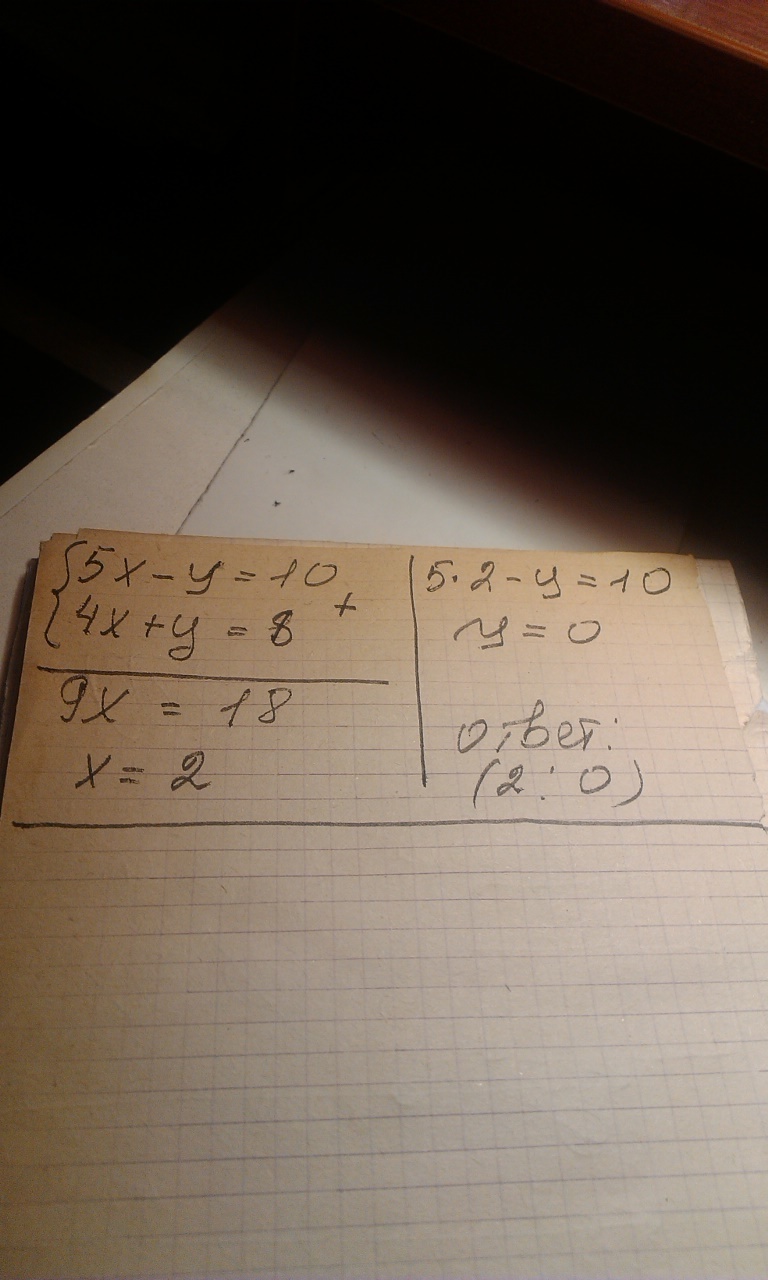 5x - y = 10
4x + y = 8 +
9x = 18
x = 2
5·2 - y = 10
y = 0
ответ:
(2 : 0)